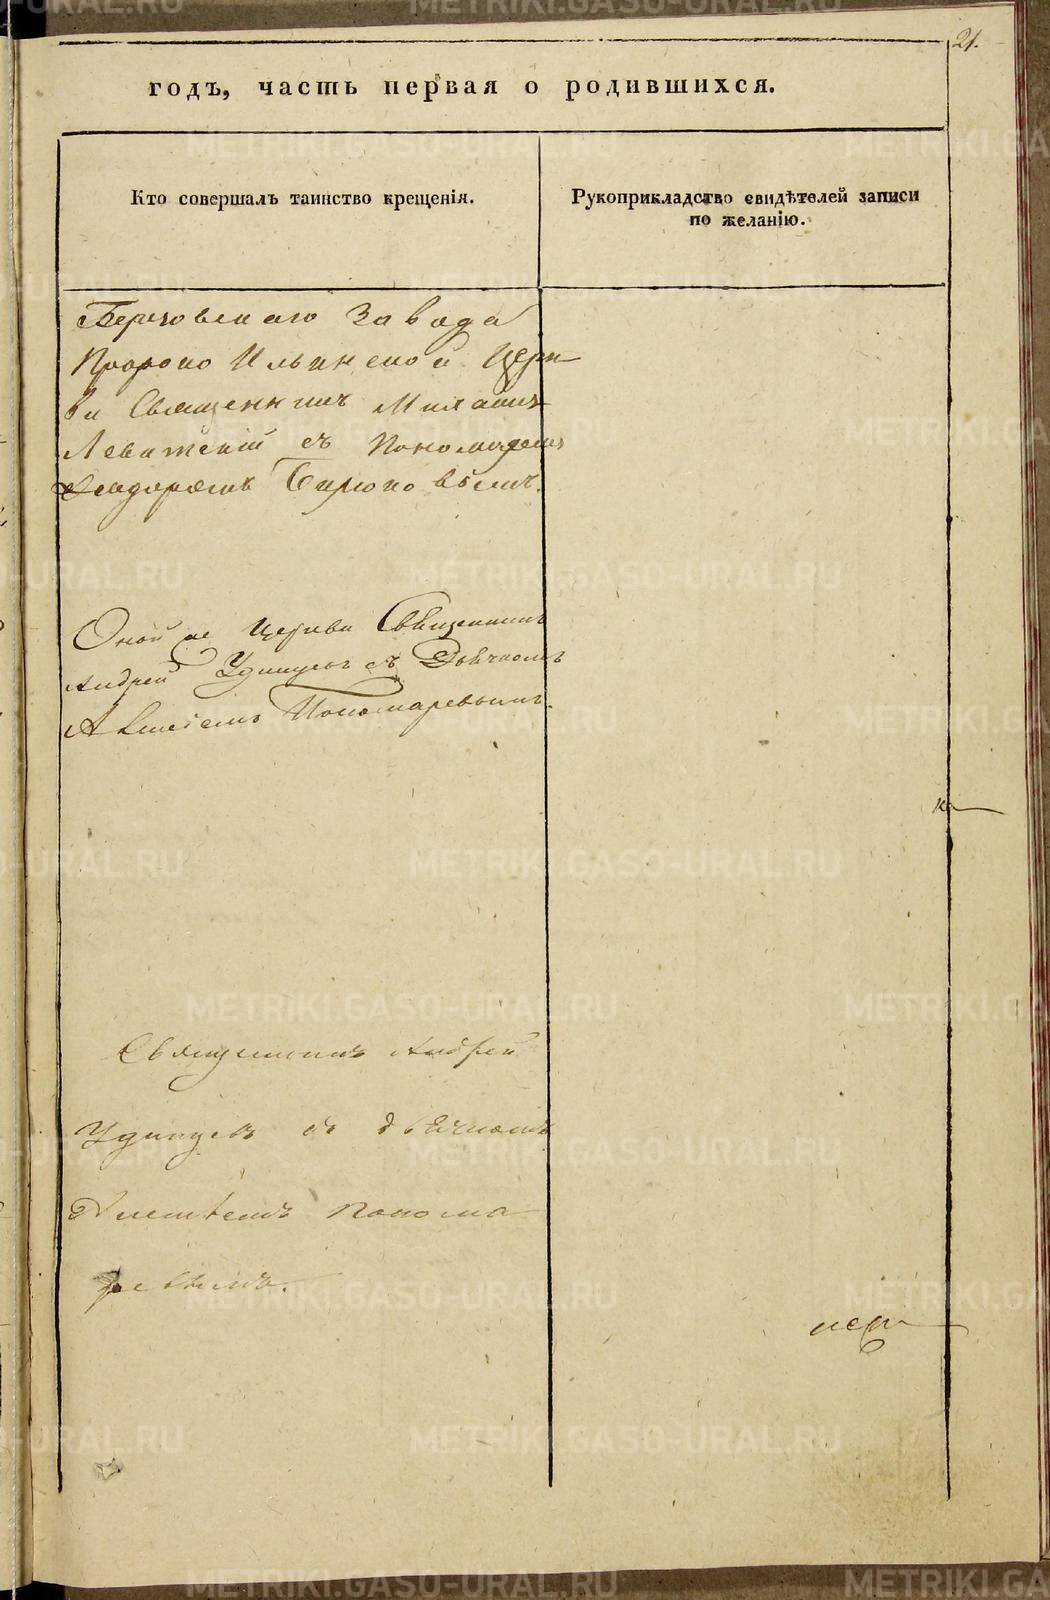 21.
годъ, часть первая о родившихся.
Кто совершалъ таинство крещенія.
Рукоприкладство свидѣтелей записи
по желанію.
Березовскаго Завода
Пророко Ильинской Церк-
ви Священникъ Михаилъ
Левитскій съ Пономаремъ
Ѳеодоромъ
Оной же Церкви Священникъ
Андрей Удинцевъ съ Дьячкомъ
Алексѣемъ Пономаревымъ.
Священникъ Андрей
Удинцевъ съ дьячкомъ
Алексѣемъ Понома
ревымъ.
METRIKI.GASO-URAL.RU